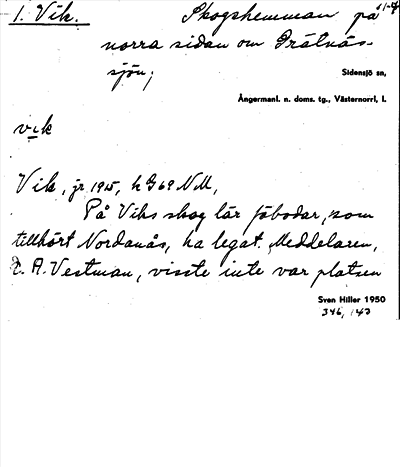 1. Vik. Skogshemman på
norra sidan om Grätnäs-
sjön;
Sidensjö sn,
Ångermanl. n. doms. tg., Västernorrl. l.
vik
Vik, jr 1915, k G69 NM,
På Viks skog lär fäbodar, som
tillhört Nordanås, ha legat. Meddelaren,
E. A. Vestman, visste inte var platsen
Sven Hiller 1950
346, 143